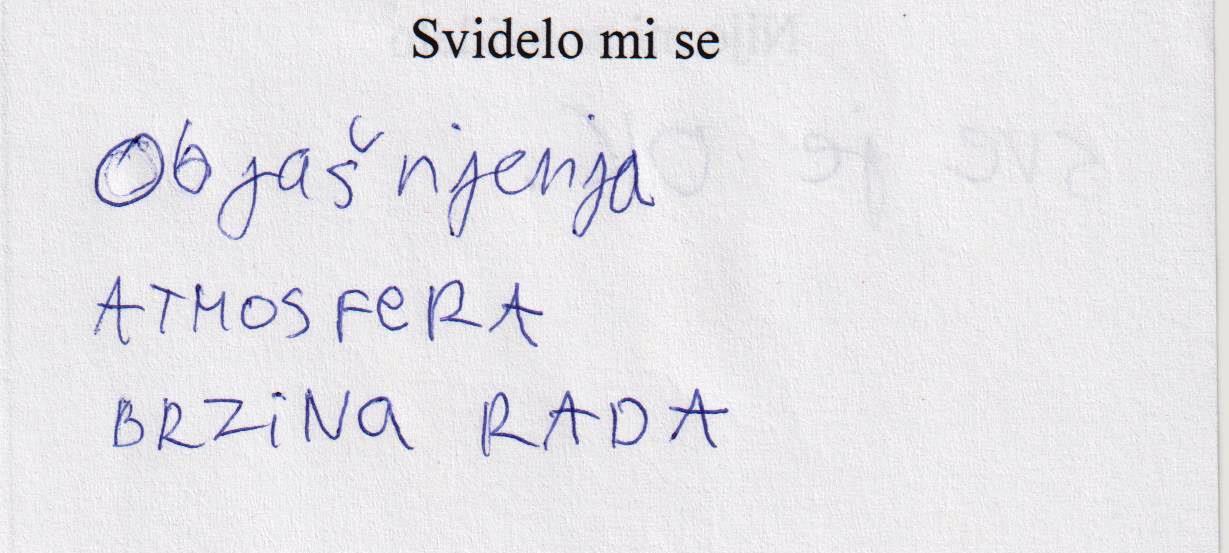 Svidelo mi se
Objašnjenja
ATMOSFeRA
BRZiNa RADA